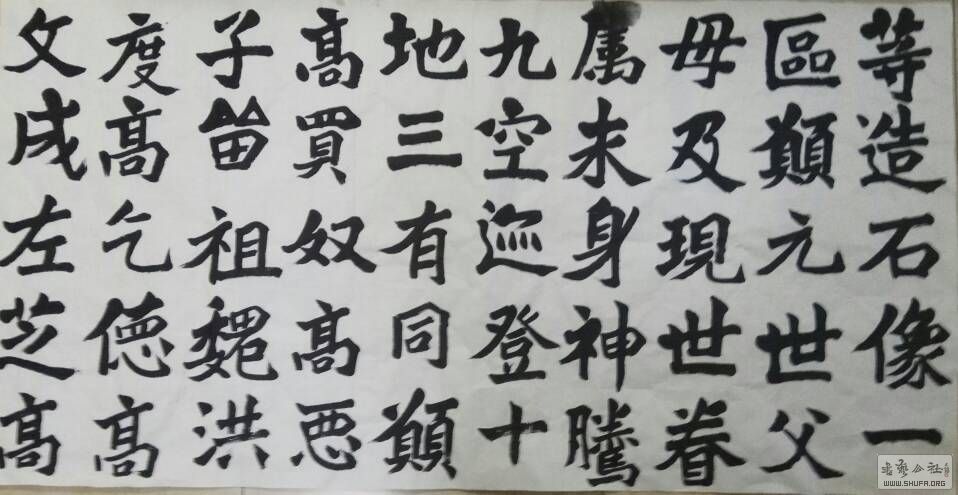 等造石像一
區顛元世父
母及現世眷
属未身神騰
九空迩登十
地三有同顛
高買奴高恧
子甾祖魏洪
度高乞德高
文成左芝高
WWW.SHUFA.ORG